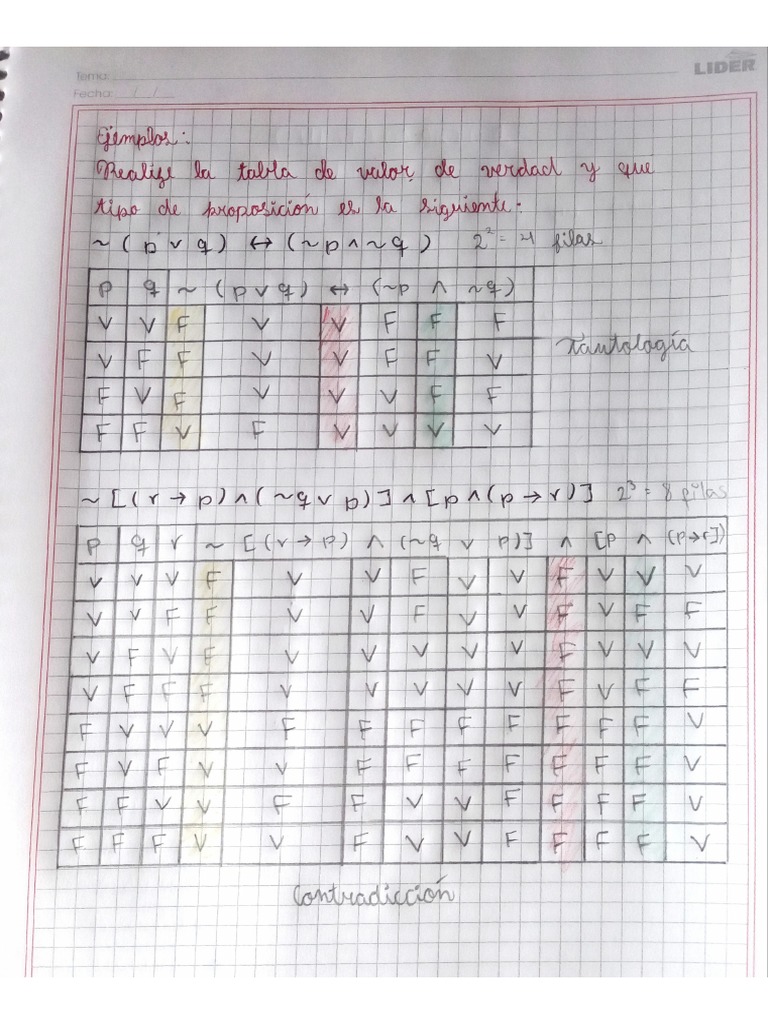 LIDER
Tema:
Fecha: / /
Ejemplos:
Realize la tabla de valor de verdad y que
tipo de proposición es la siguiente:
~ ( p v q ) ↔ ( ~p ∧ ~q ) 2² = 4 filas
p q ~ ( p v q ) ↔ ( ~p ∧ ~q )
V V F V V F F F
V F F V V F F V
Tautología
F V F V V V F F
F F V F V V V V
~ [ ( r → p ) ∧ ( ~q v p ) ] ∧ [ p ∧ ( p → r ) ] 2³ = 8 filas
p q r ~ [ ( r → p ) ∧ ( ~q v p ) ] ∧ [ p ∧ ( p → r ] )
V V V F V V F V V F V V V
V V F F V V F V V F V F F
V F V F V V V V V F V V V
V F F F V V V V V F V F F
F V V V F F F F F F F F V
F V F V V F F F F F F F V
F F V V F F V V F F F F V
F F F V V F V V F F F F V
Contradicción